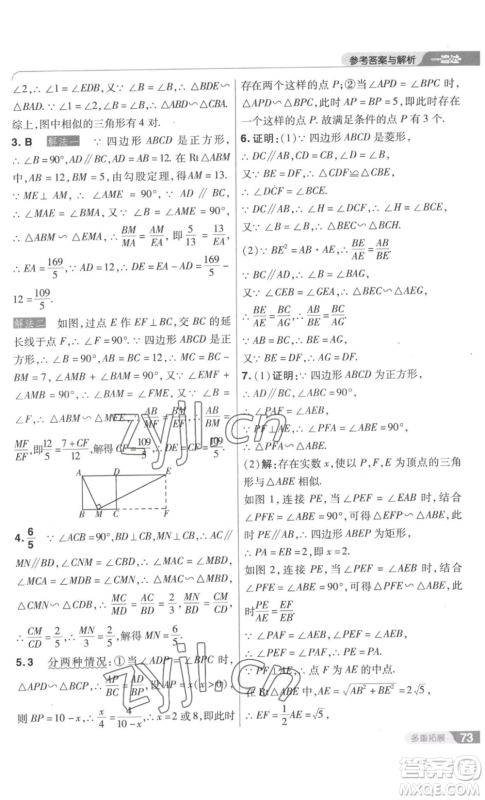 参考答案与解析 一遍过
∠2,∴∠1=∠EDB,又∵∠B=∠B,∴△EBD∽
△BAD.∵∠1=∠C,∠B=∠B,∴△EBD∽△ABC.
综上,图中相似的三角形有4对.
3.B 解法一 ∵四边形ABCD是正方形,
∴∠B=90°,AD∥BC,AD=AB=12.在Rt△ABM
中,AB=12,BM=5,由勾股定理,得AM=13.
∵ME⊥AM,∴∠AME=90°,∴∠B=∠AME.
∵∠AMB=∠MAE,
∴△ABM∽△EMA,∴BM/MA=AM/EA,即5/13=13/EA,
∴EA=169/5.∵AD=12,∴DE=EA-AD=169/5-
12=109/5.
解法二 如图,过点E作EF⊥BC交BC的延
长线于点F,∴∠F=90°.∵四边形ABCD是正
方形,∴∠B=90°,AB=BC=12,∴MC=BC-
BM=7,∠AMB+∠BAM=90°.又∵∠EMF+
∠AMB=90°,∴∠BAM=∠EMF.又∵∠B=
∠F,∴△ABM∽△MFE,∴AB/MF=BM/EF,∴AB/BM=
MF/EF,即12/5=(7+CF)/12,∴CF=109/5,∴DE=CF=109/5.
A D E
B M C F
4.6/5 ∵∠ACB=90°,BD⊥CB,MN⊥CB,∴AC∥
MN∥BD,∠CNM=∠CBD,∴∠MAC=∠MDB,
∠CMA=∠BMD,∠MCN=∠DCB,∴△MAC∽
△MDB,△CMN∽△CDB,∴MC/MD=AC/BD=2/3,MN/BD=
CM/CD,∴CM/CD=2/5,∴MN/3=2/5,∴MN=6/5.
5.3 分两种情况:①当∠ADP=∠BPC时,
△APD∽△BCP,∴AP/BC=AD/BP.设AP=x(x>0),
则BP=10-x,∴x/4=4/(10-x),解得x=2或x=8,此时
存在2个符合条件的点P;②当∠APD=∠BPC时,
△APD∽△BPC,∴AP=BP=5,即此时存在
1个点P.故满足条件的点P有3个.
6.证明:(1)∵四边形ABCD是菱形,
∴DC∥AB,CD=CB,∴∠CDF=∠B.
又∵BE=DF,∴△CDF≌△CBE,
∴∠DCF=∠BCE.
∵DC∥BH,∴∠H=∠DCF=∠BCE.
又∵∠B=∠B,∴△BEC∽△BCH.
(2)∵BE²=AB·AE,∴BE/AE=AB/BE.
∵BC∥AG,∴△BCE∽△AGE,
∴BE/AE=BC/AG.又∵AB=BC,∴BE=AG.
7.(1)证明:∵四边形ABCD为正方形,
∴AD∥BC,∠ABE=90°,∴∠PAF=∠AEB.
∵PF⊥AE,∴∠PFA=∠ABE=90°,
∴△PFA∽△ABE.
(2)解:存在实数x,使以P,F,E为顶点的三角
形与△ABE相似.
如图1,连接PE,当∠PEF=∠EAB时,结合
∠PFE=∠ABE=90°,得△PFE∽△EBA,
∴PE∥AB,∴四边形ABEP为矩形,
∴PA=EB=2,即x=2.
如图2,连接PE,当∠PEF=∠AEB时,结合
∠PFE=∠ABE=90°,得△PFE∽△ABE,
∴PF/AE=EF/EB.
∵∠PAF=∠AEB,∴∠PEF=∠PAF,
∴PE=PA.∵PF⊥AE,∴点F为AE的中点.
在Rt△ABE中,AE=√(AB²+BE²)=√5,
∴EF=1/2AE=√5,
多重拓展 73
zyjl.cn
zyjl.cn
答案圈
MXQE.COM